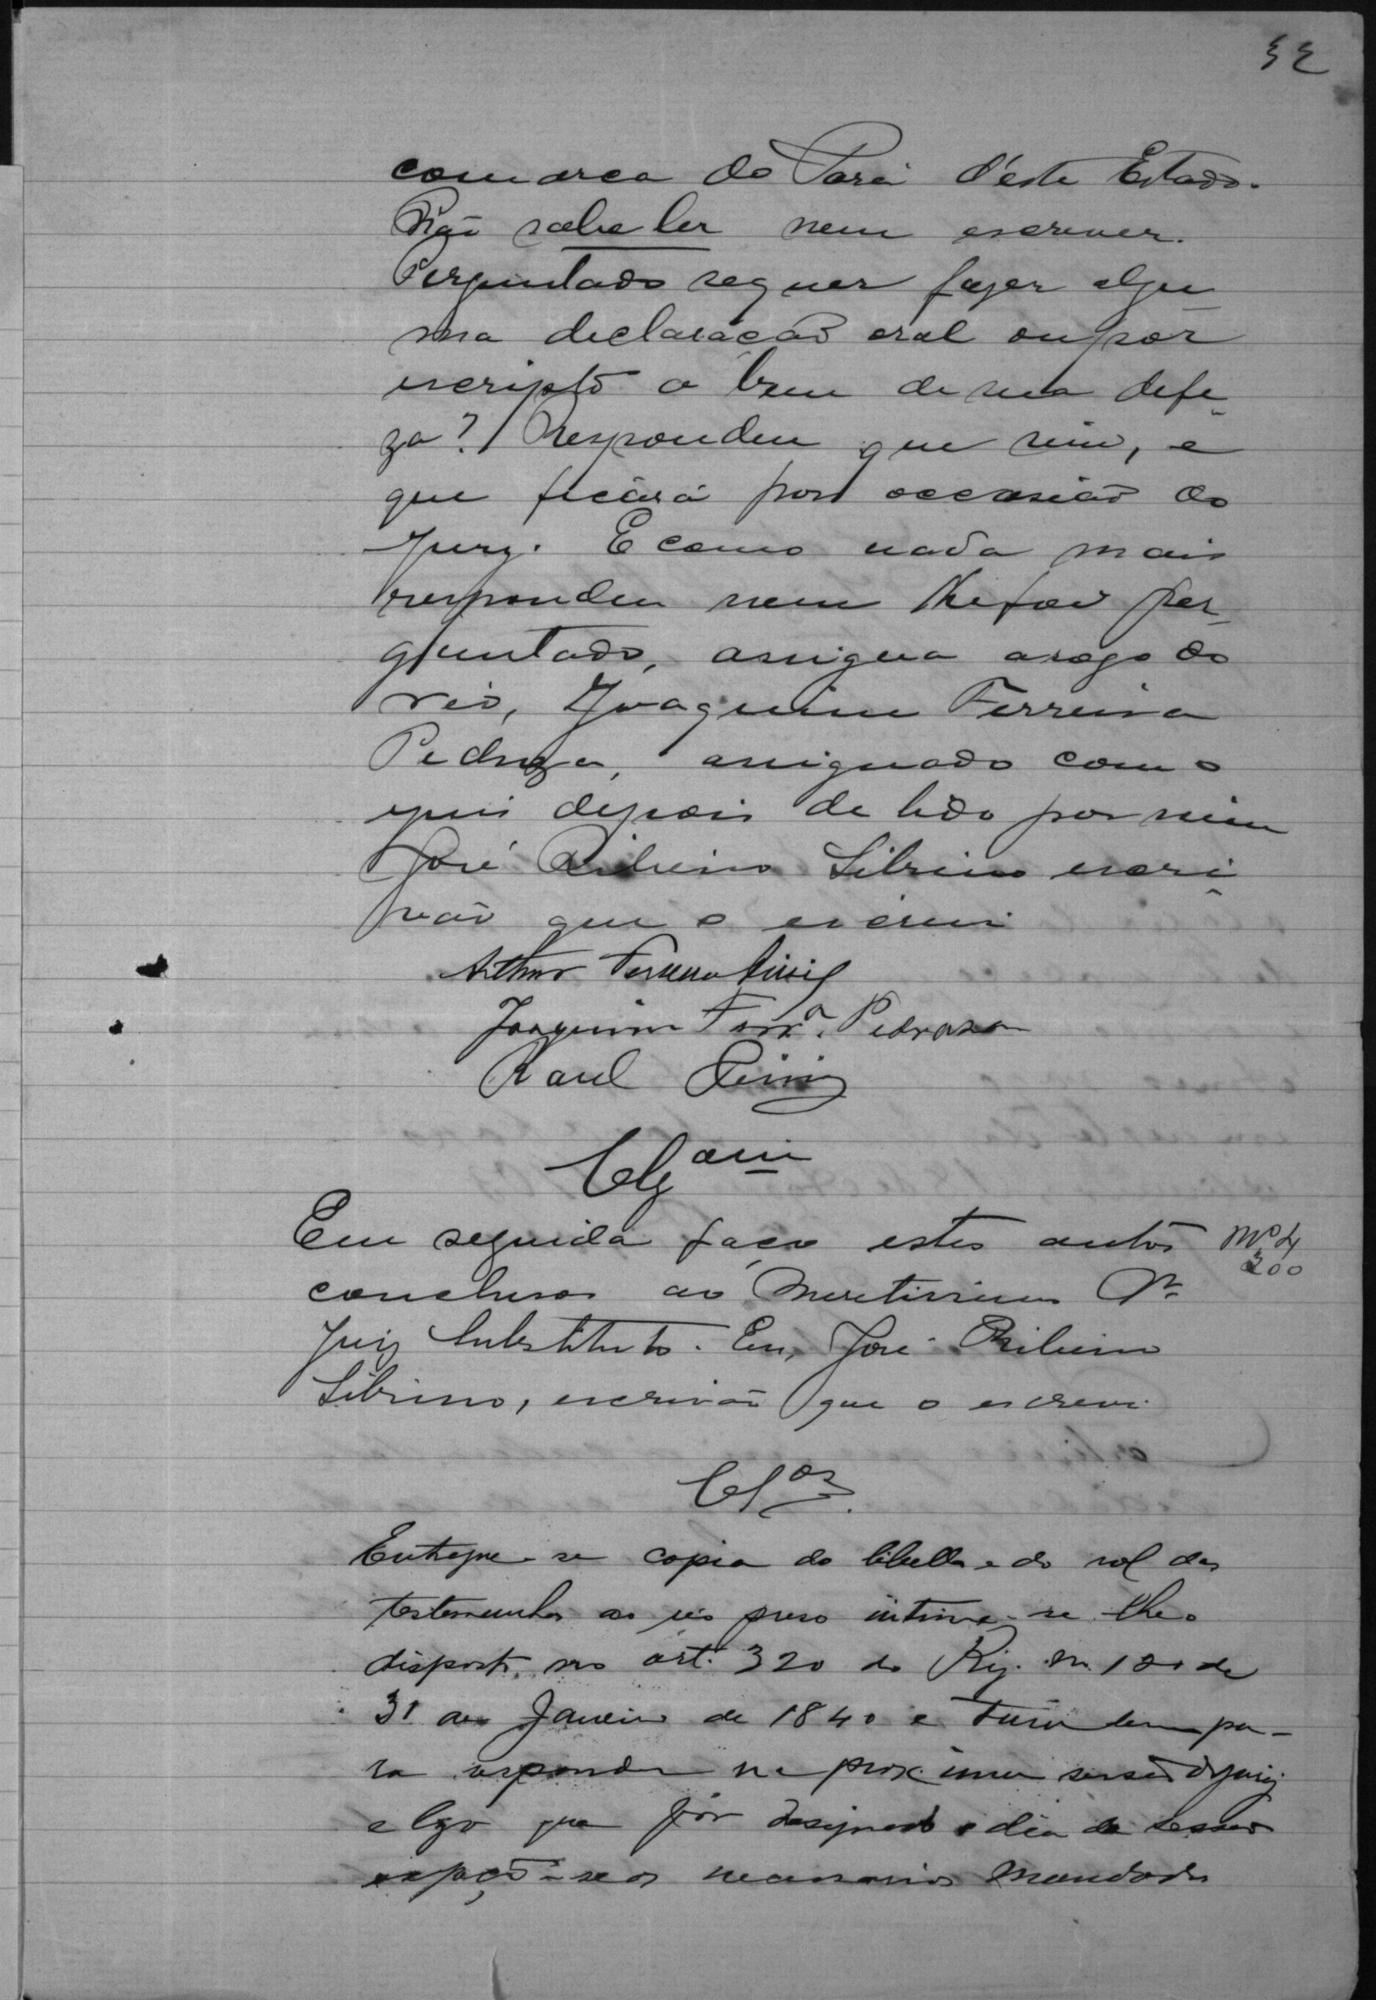 32
comarca do Pará d'este Estado.
Não sabe ler nem escrever.
Perguntado se quer fazer algu
ma declaração oral ou por
escripto a bem de sua defe
za? Respondeu que sim, e
que ficará por occasião do
jury. E como nada mais
respondeu nem lhe foi per
guntado, assigna a rogo do
réo, Joaquim Ferreira
Pedroza, assignado com o
juiz depois de lido por mim
José Ribeiro Sibrino escri
vão que o escrevi
Arthur
Joaquim Ferrª. Pedrosa
Raul
Clzam
Em seguida faço estes autos
200
conclusos ao Meretissimo Dr.
Juiz Substituto. Eu, José Ribeiro
Sibrino, escrivão que o escrevi.
Clos
Entregue-se copia do libello e do rol das
testemunhas ao réo preso intime-se-lhe o
disposto no art. 320 do Reg. n. 120 de
31 de Janeiro de 1840 e para
ra responder na proxima sessão do jury
e logo que fôr designado o dia da sessão
expeção-se os necessarios mandados